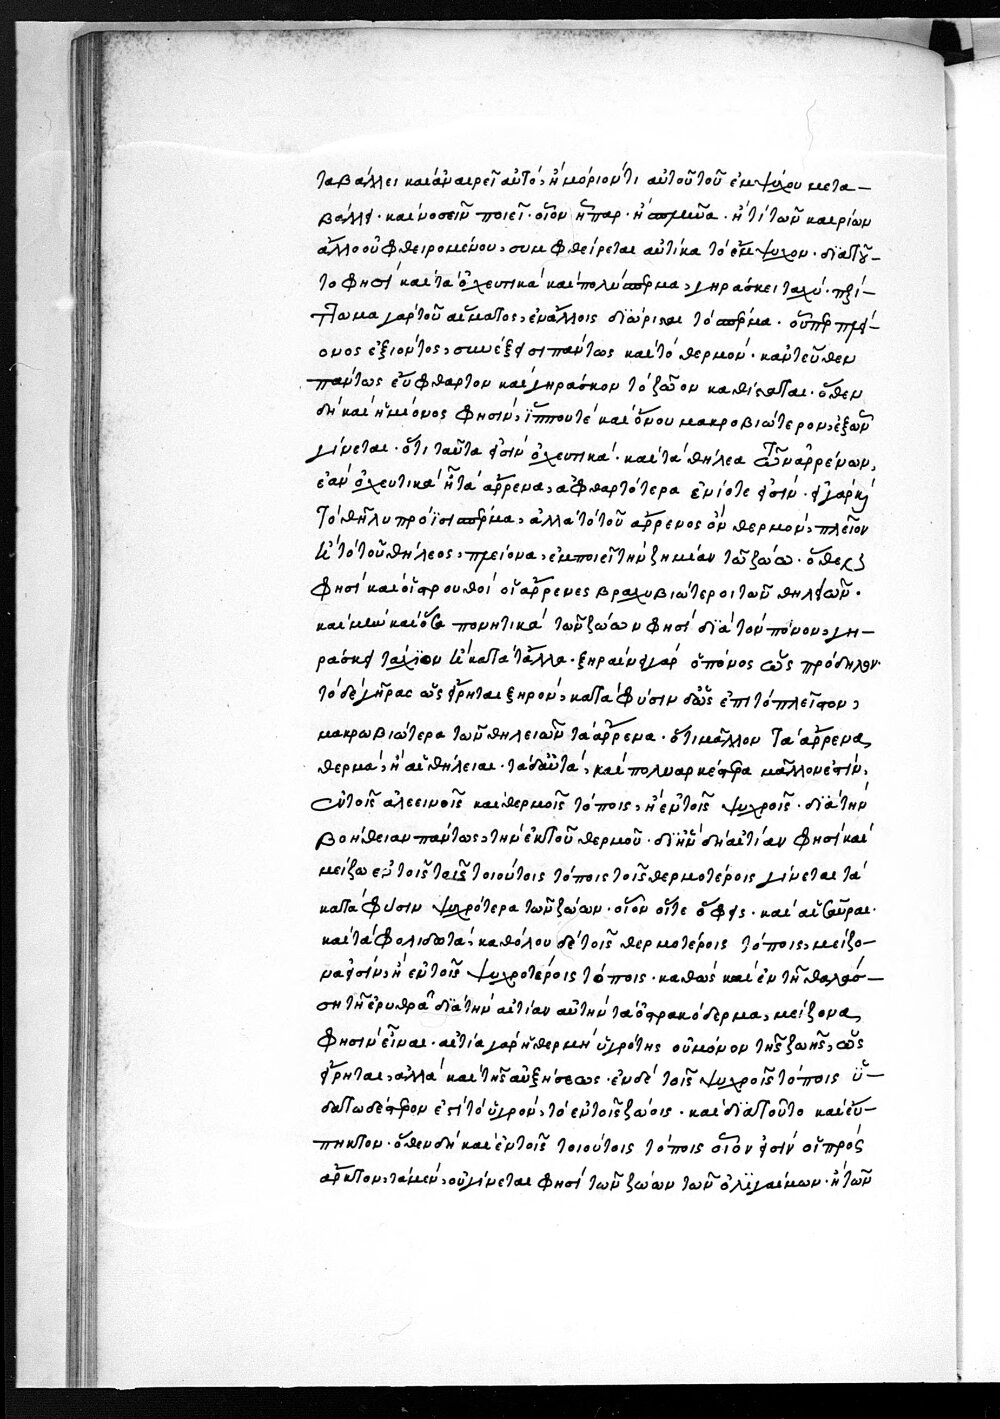 ταβάλλει καὶ ἀναιρεῖ αὐτό, ἢ μόριόν τι αὐτοῦ τοῦ ἐμψύχου μετα-
βάλλει· καὶ νοσεῖν ποιεῖ· οἷον ἧπαρ· ἢ σπλῆνα· ἤ τι τῶν καιρίων
ἄλλο οὗ φθειρομένου, συμφθείρεται αὐτίκα τὸ ἔμψυχον· διὰ τοῦ-
το φησὶ καὶ τὰ ὀχευτικὰ καὶ πολύσπερμα, γηράσκει ταχύ·
γὰρ τοῦ αἵματος, ἐν ἄλλοις διώρισται τὸ σπέρμα· οὗπερ
ονος ἐξιόντος, συνέξεισι πάντως καὶ τὸ θερμόν· κἀντεῦθεν
πάντως εὔφθαρτον καὶ γηράσκον τὸ ζῶον καθίσταται· ὅθεν
δὴ καὶ ἡμίονος φησὶν, ἵππου τὲ καὶ ὄνου μακροβιώτερον, ἐξ ὧν
γίνεται· ὅτι ταῦτα εἰσὶν ὀχευτικά· καὶ τὰ θήλεα τῶν ἀρρένων,
ἐὰν ὀχευτικὰ ᾖ τὰ ἄρρενα, ἀφθαρτότερα ἐνίοτε εἰσίν· εἰ γὰρ καὶ
τὸ θῆλυ προΐησι σπέρμα, ἀλλὰ τὸ τοῦ ἄρρενος ὂν θερμὸν, πλεῖον
ἢ τὸ τοῦ θήλεος, πλείονα, ἐμποιεῖ τὴν ζημίαν τῶ ζώω· ὅθεν
φησὶ καὶ οἱ στρουθοὶ οἱ ἄρρενες βραχυβιώτεροι τῶν θηλειῶν·
καὶ μὴν καὶ ὅσα πονητικὰ τῶν ζώων φησὶ διὰ τὸν πόνον, γη-
ράσκει τάχιον ἢ κατὰ τἄλλα· ξηραίνει γὰρ ὁ πόνος ὡς πρόδηλον·
τὸ δὲ γῆρας ὡς εἴρηται ξηρόν, κατὰ φύσιν δ' ὡς ἐπιτοπλεῖστον,
μακρωβιώτερα τῶν θηλειῶν τὰ ἄρρενα· ὅτι μᾶλλον τὰ ἄρρενα
θερμά, ἢ αἱ θήλειαι· τὰ δ' αὐτὰ, καὶ πολυαρκέστερα μᾶλλον ἐστὶν,
ἐν τοῖς ἀλεεινοῖς καὶ θερμοῖς τόποις, ἢ ἐν τοῖς ψυχροῖς· διὰ τὴν
βοήθειαν πάντως, τὴν ἐκ τοῦ θερμοῦ· δι' ἣν δὴ αἰτίαν φησὶ καὶ
μείζω ἐν τοῖς τοιούτοις τόποις τοῖς θερμοτέροις γίνεται τὰ
κατὰ φύσιν ψυχρότερα τῶν ζώων· οἷον οἵτε ὄφεις· καὶ αἱ σαῦραι·
καὶ τὰ φολιδωτά, καθόλου δὲ τοῖς θερμοτέροις τόποις, μείζο-
να εἰσὶν, ἢ ἐν τοῖς ψυχροτέροις τόποις· καθὼς καὶ ἐν τῆ θαλάσ-
ση τῆ ἐρυθρᾶ διὰ τὴν αἰτίαν αὐτὴν τὰ ὀστρακόδερμα, μείζονα,
φησὶν εἶναι· αἰτία γὰρ ἡ θερμὴ ὑγρότης οὐ μόνον τῆς ζωῆς, ὡς
εἴρηται, ἀλλὰ καὶ τῆς αὐξήσεως· ἐν δὲ τοῖς ψυχροῖς τόποις ὑ-
δατωδέστερον ἐστὶ τὸ ὑγρὸν, τὸ ἐν τοῖς ζώοις· καὶ διὰ τοῦτο καὶ εὔ-
πηκτον· ὅθεν δὴ καὶ ἐν τοῖς τοιούτοις τόποις οἷον εἰσὶν οἱ πρὸς
ἄρκτον, τὰ μὲν, οὐ γίνεται φησὶ τῶν ζώων τῶν ὀλιγαίμων· ἢ τῶν